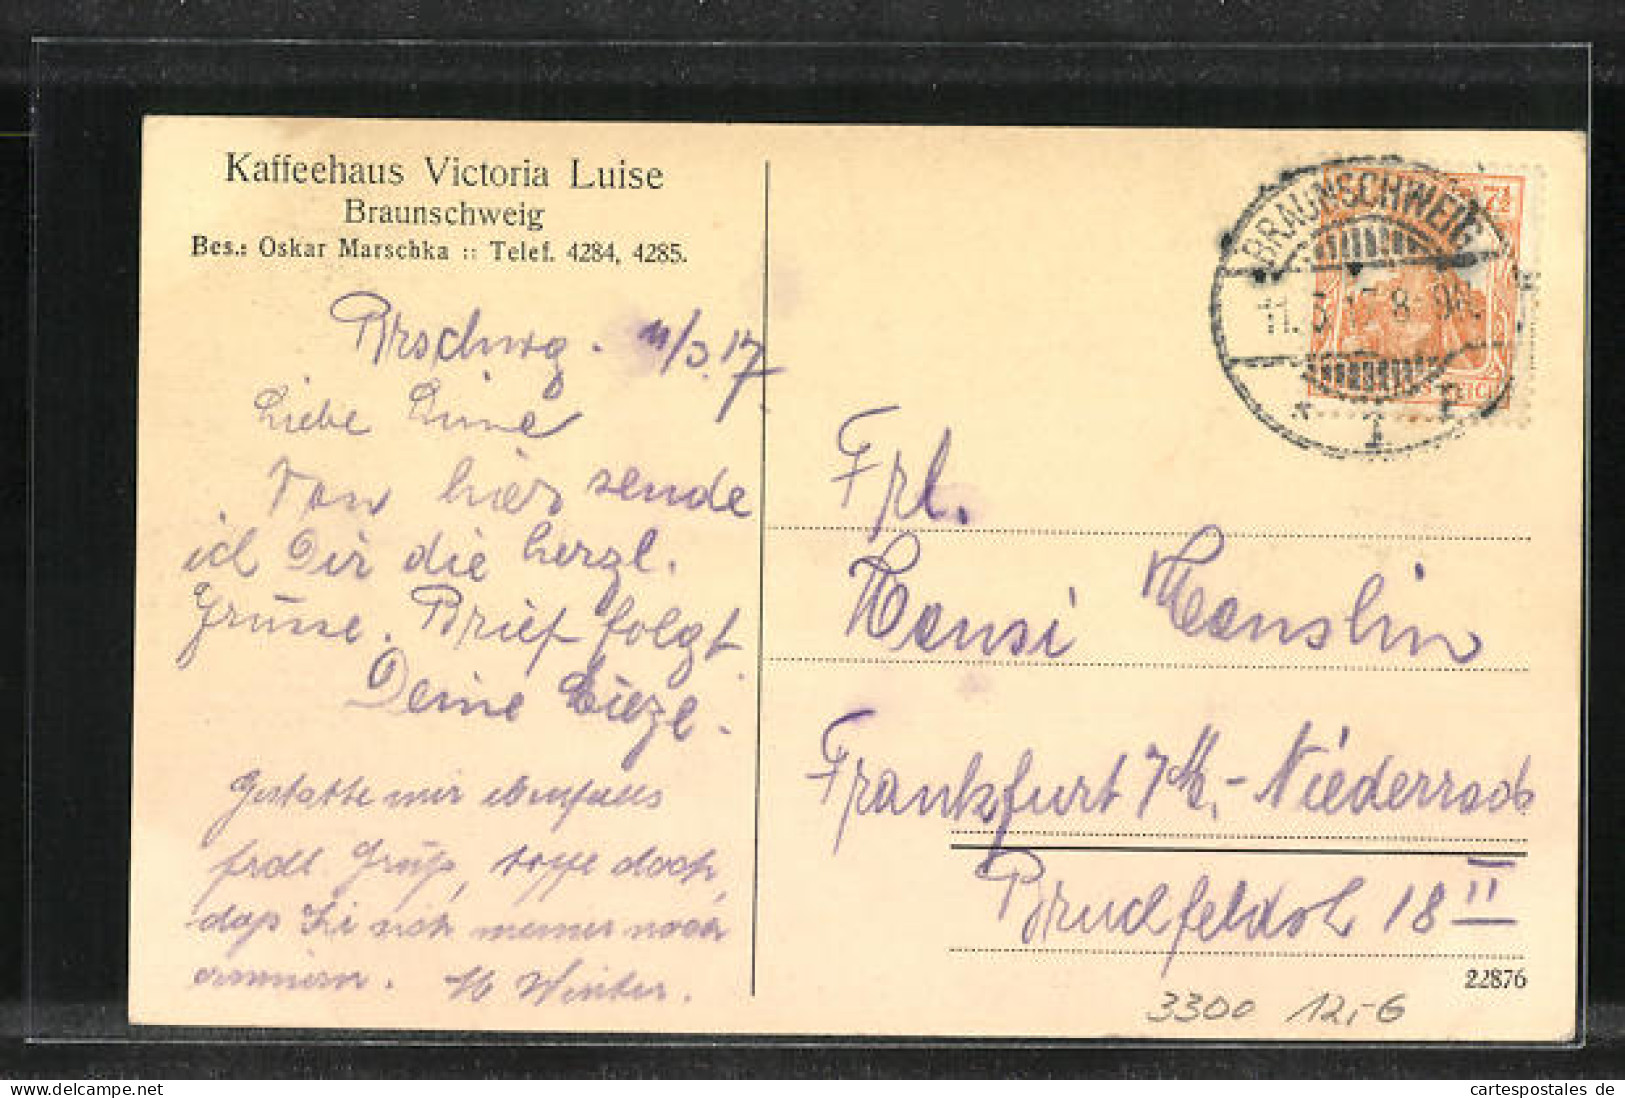 Kaffeehaus Victoria Luise
Braunschweig
Bes.: Oskar Marschka :: Telef. 4284, 4285.
Brschwg. 11/3.17.
Liebe
Von hier sende
ich Dir die herzl.
Grüsse. Brief folgt
Deine
Gestatte mir ebenfalls
frdl. Gruß, hoffe doch,
daß Sie sich meiner noch
erinnern. Winter.
BRAUNSCHWEIG
11. 3. 17. 8-9N.
* 1 P
7½
Frl.
Hansi
Frankfurt a/M.-Niederrad
Bruchfeldstr. 18 II
22876
3300 12,-G
delcampe.net
cartespostales de